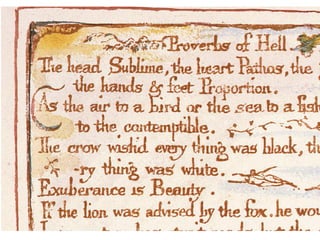 Proverbs of Hell
The head Sublime, the heart Pathos, the
the hands & feet Proportion.
As the air to a bird or the sea to a fish
to the contemptible.
The crow wish'd every thing was black, th
-ry thing was white.
Exuberance is Beauty.
If the lion was advised by the fox. he wou